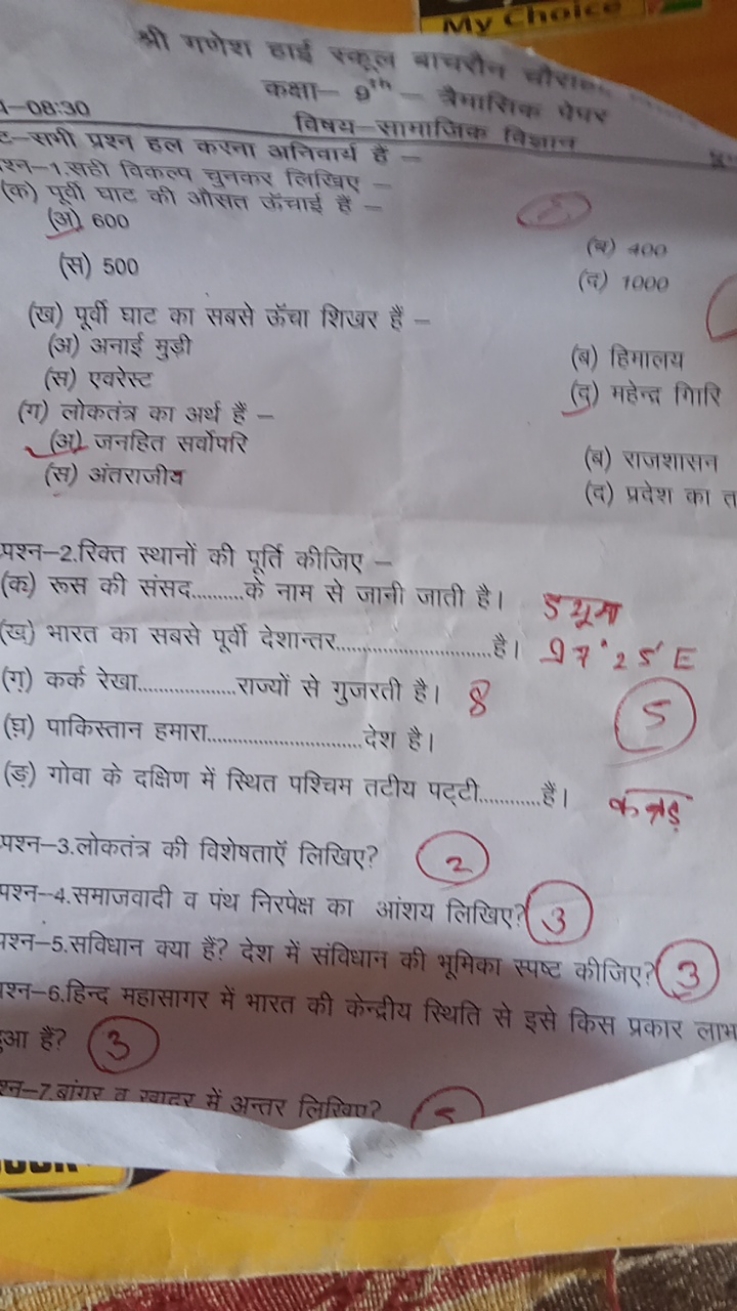 My Choice
श्री गणेश हाई स्कूल बाचरौन
कक्षा— 9th — त्रैमासिक पेपर
—08:30
विषय—सामाजिक विज्ञान
ट—सभी प्रश्न हल करना अनिवार्य हैं —
श्न—1.सही विकल्प चुनकर लिखिए —
(क) पूर्वी घाट की औसत ऊँचाई हैं —
(अ) 600
(ब) 400
(स) 500
(द) 1000
(ख) पूर्वी घाट का सबसे ऊँचा शिखर हैं —
(अ) अनाई मुड़ी
(ब) हिमालय
(स) एवरेस्ट
(द) महेन्द्र गिारि
(ग) लोकतंत्र का अर्थ हैं —
(अ) जनहित सर्वोपरि
(ब) राजशासन
(स) अंतराजीय
(द) प्रदेश का त
प्रश्न—2.रिक्त स्थानों की पूर्ति कीजिए —
(क) रूस की संसद..........के नाम से जानी जाती है। ड्यूमा
(ख) भारत का सबसे पूर्वी देशान्तर.............................है। 97°25'E
(ग) कर्क रेखा..................राज्यों से गुजरती है। 8
5
(घ) पाकिस्तान हमारा.............................देश है।
(ङ) गोवा के दक्षिण में स्थित पश्चिम तटीय पट्टी............हैं। कन्नड़
प्रश्न—3.लोकतंत्र की विशेषताऍ लिखिए? 2
प्रश्न—4.समाजवादी व पंथ निरपेक्ष का आंशय लिखिए? 3
प्रश्न—5.सविधान क्या हैं? देश में संविधान की भूमिका स्पष्ट कीजिए? 3
प्रश्न—6.हिन्द महासागर में भारत की केन्द्रीय स्थिति से इसे किस प्रकार लाभ
हुआ हैं? 3
श्न—7.बांगर व खादर में अन्तर लिखिए?